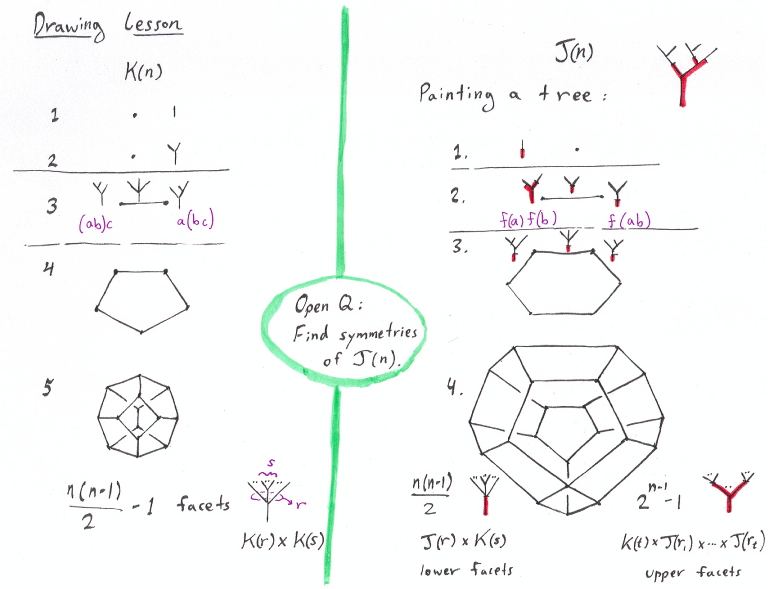 Drawing Lesson
K(n)
1
2
3
(ab)c
a(bc)
4
5
n(n-1)/2 - 1 facets
s
r
K(r) x K(s)
Open Q:
Find symmetries
of J(n).
J(n)
Painting a tree:
1.
2.
f(a) f(b)
f(ab)
3.
4.
n(n-1)/2
J(r) x K(s)
lower facets
2^{n-1} - 1
K(t) x J(r₁) x ... x J(r_t)
upper facets